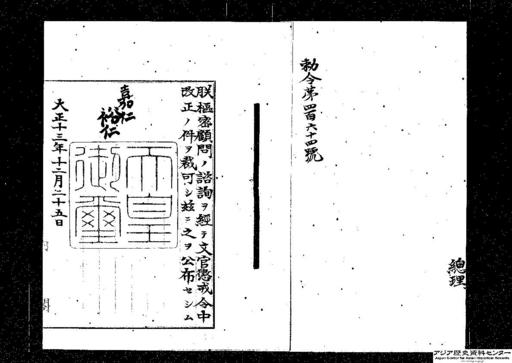 勅令第四百六十四號
總理
朕樞密顧問ノ諮詢ヲ經テ文官懲戒令中
改正ノ件ヲ裁可シ茲ニ之ヲ公布セシム
嘉仁
裕仁
天皇
御璽
大正十三年十二月二十五日
内閣
アジア歴史資料センター
Japan Center for Asian Historical Records